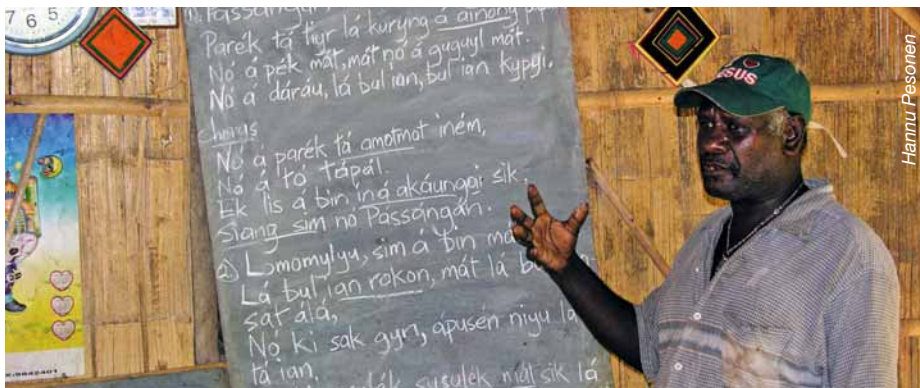 7 6 5
Passangan
Parék tá tiyr lá kuryng á aimong
Ió á pék mát, mát no á guguyl mát.
No á daráu, lá bul ian, bul ian kypyi.
chorus
No á parék tá amotmot iném,
No á to tápál.
Ek lis á bin iná akáungai sik.
Siang sim no Pássángán.
2) Lomomylyu, sim á bin
Lá bul ian rokon, mát lá
sat álá,
No ki sak gyn, ápusén niyu la
tá ian.
susulek mát sik lá
I ♥ JESUS
Hannu Pesonen